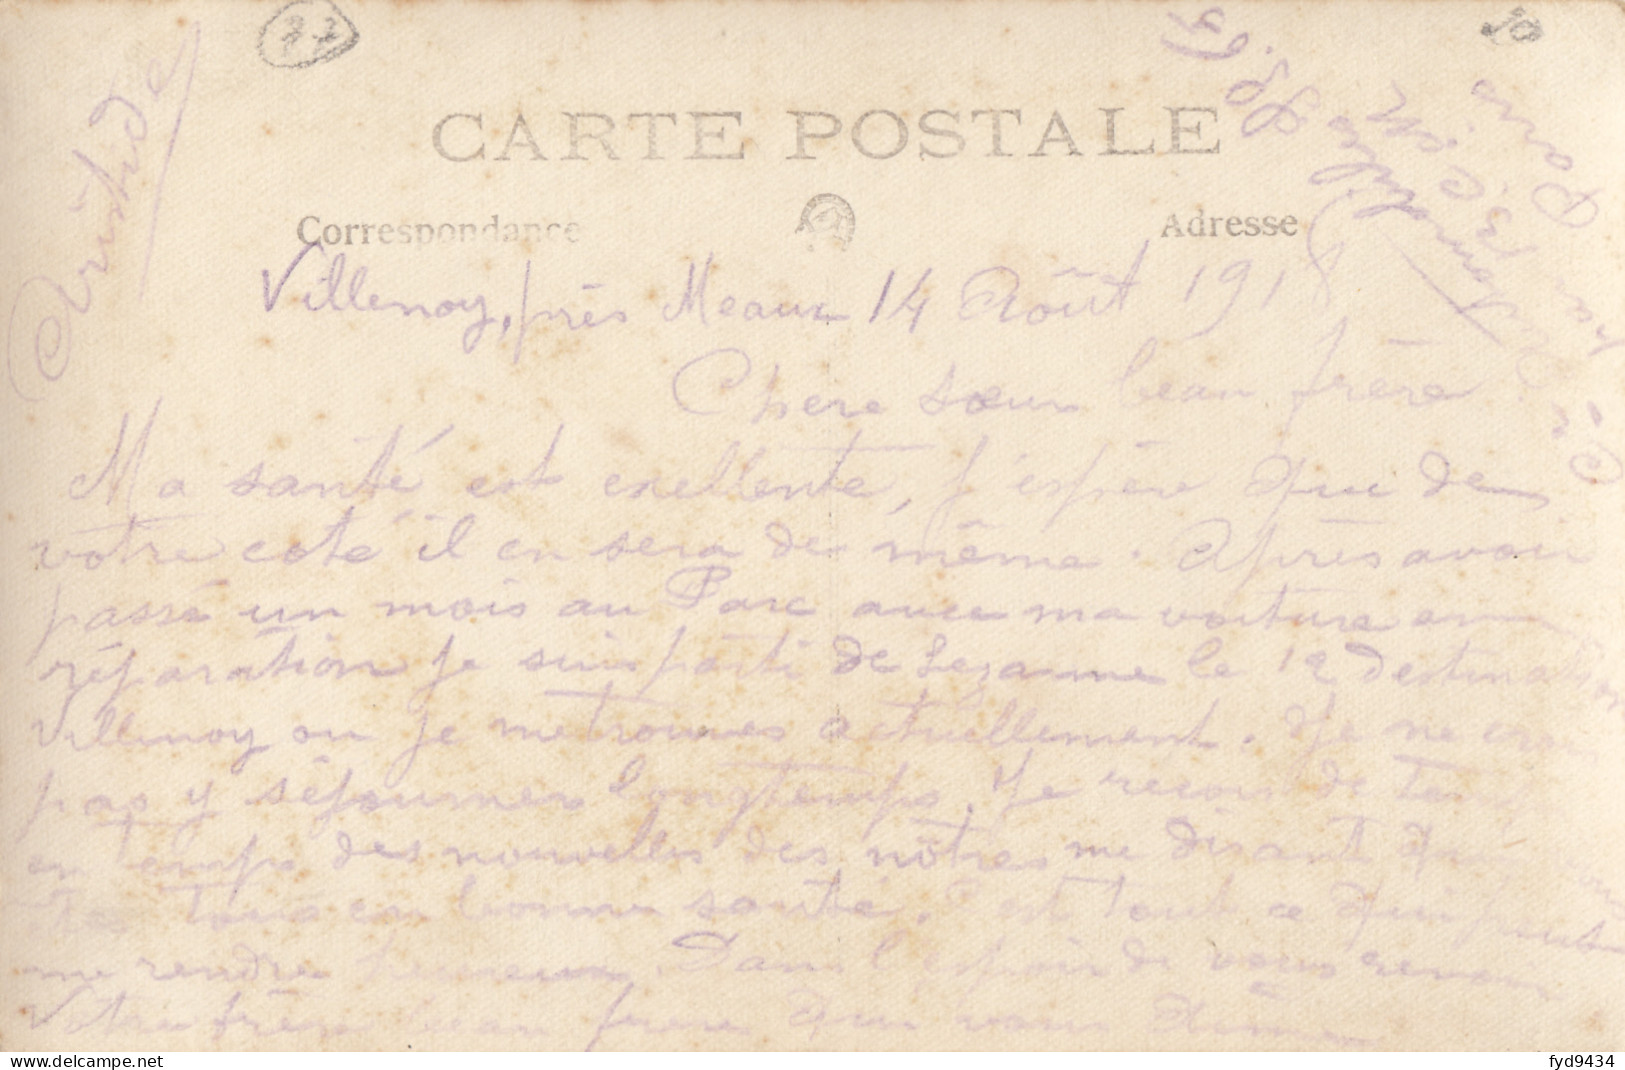 77
10
CARTE POSTALE
Correspondance
Adresse
Aristide
Villenoy, près Meaux 14 Août 191
Chere sœur beau frère
Ma santé est exellente, j'espère que de
votre coté il en sera de même. Après avoir
passé un mois au Parc avec ma voiture en
réparation je suis parti de Sezanne le 12 destination
Villenoy ou je me trouves actuellement. Je ne crois
pas y séjourner longtemps. Je recois de temps
en temps des nouvelles des nôtres me disant
tous en bonne santé. C'est tout ce qui peut
me rendre heureux. Dans l'espoir de vous revoir
Votre frère beau frère qui vous aime
delcampe.net
fyd9434